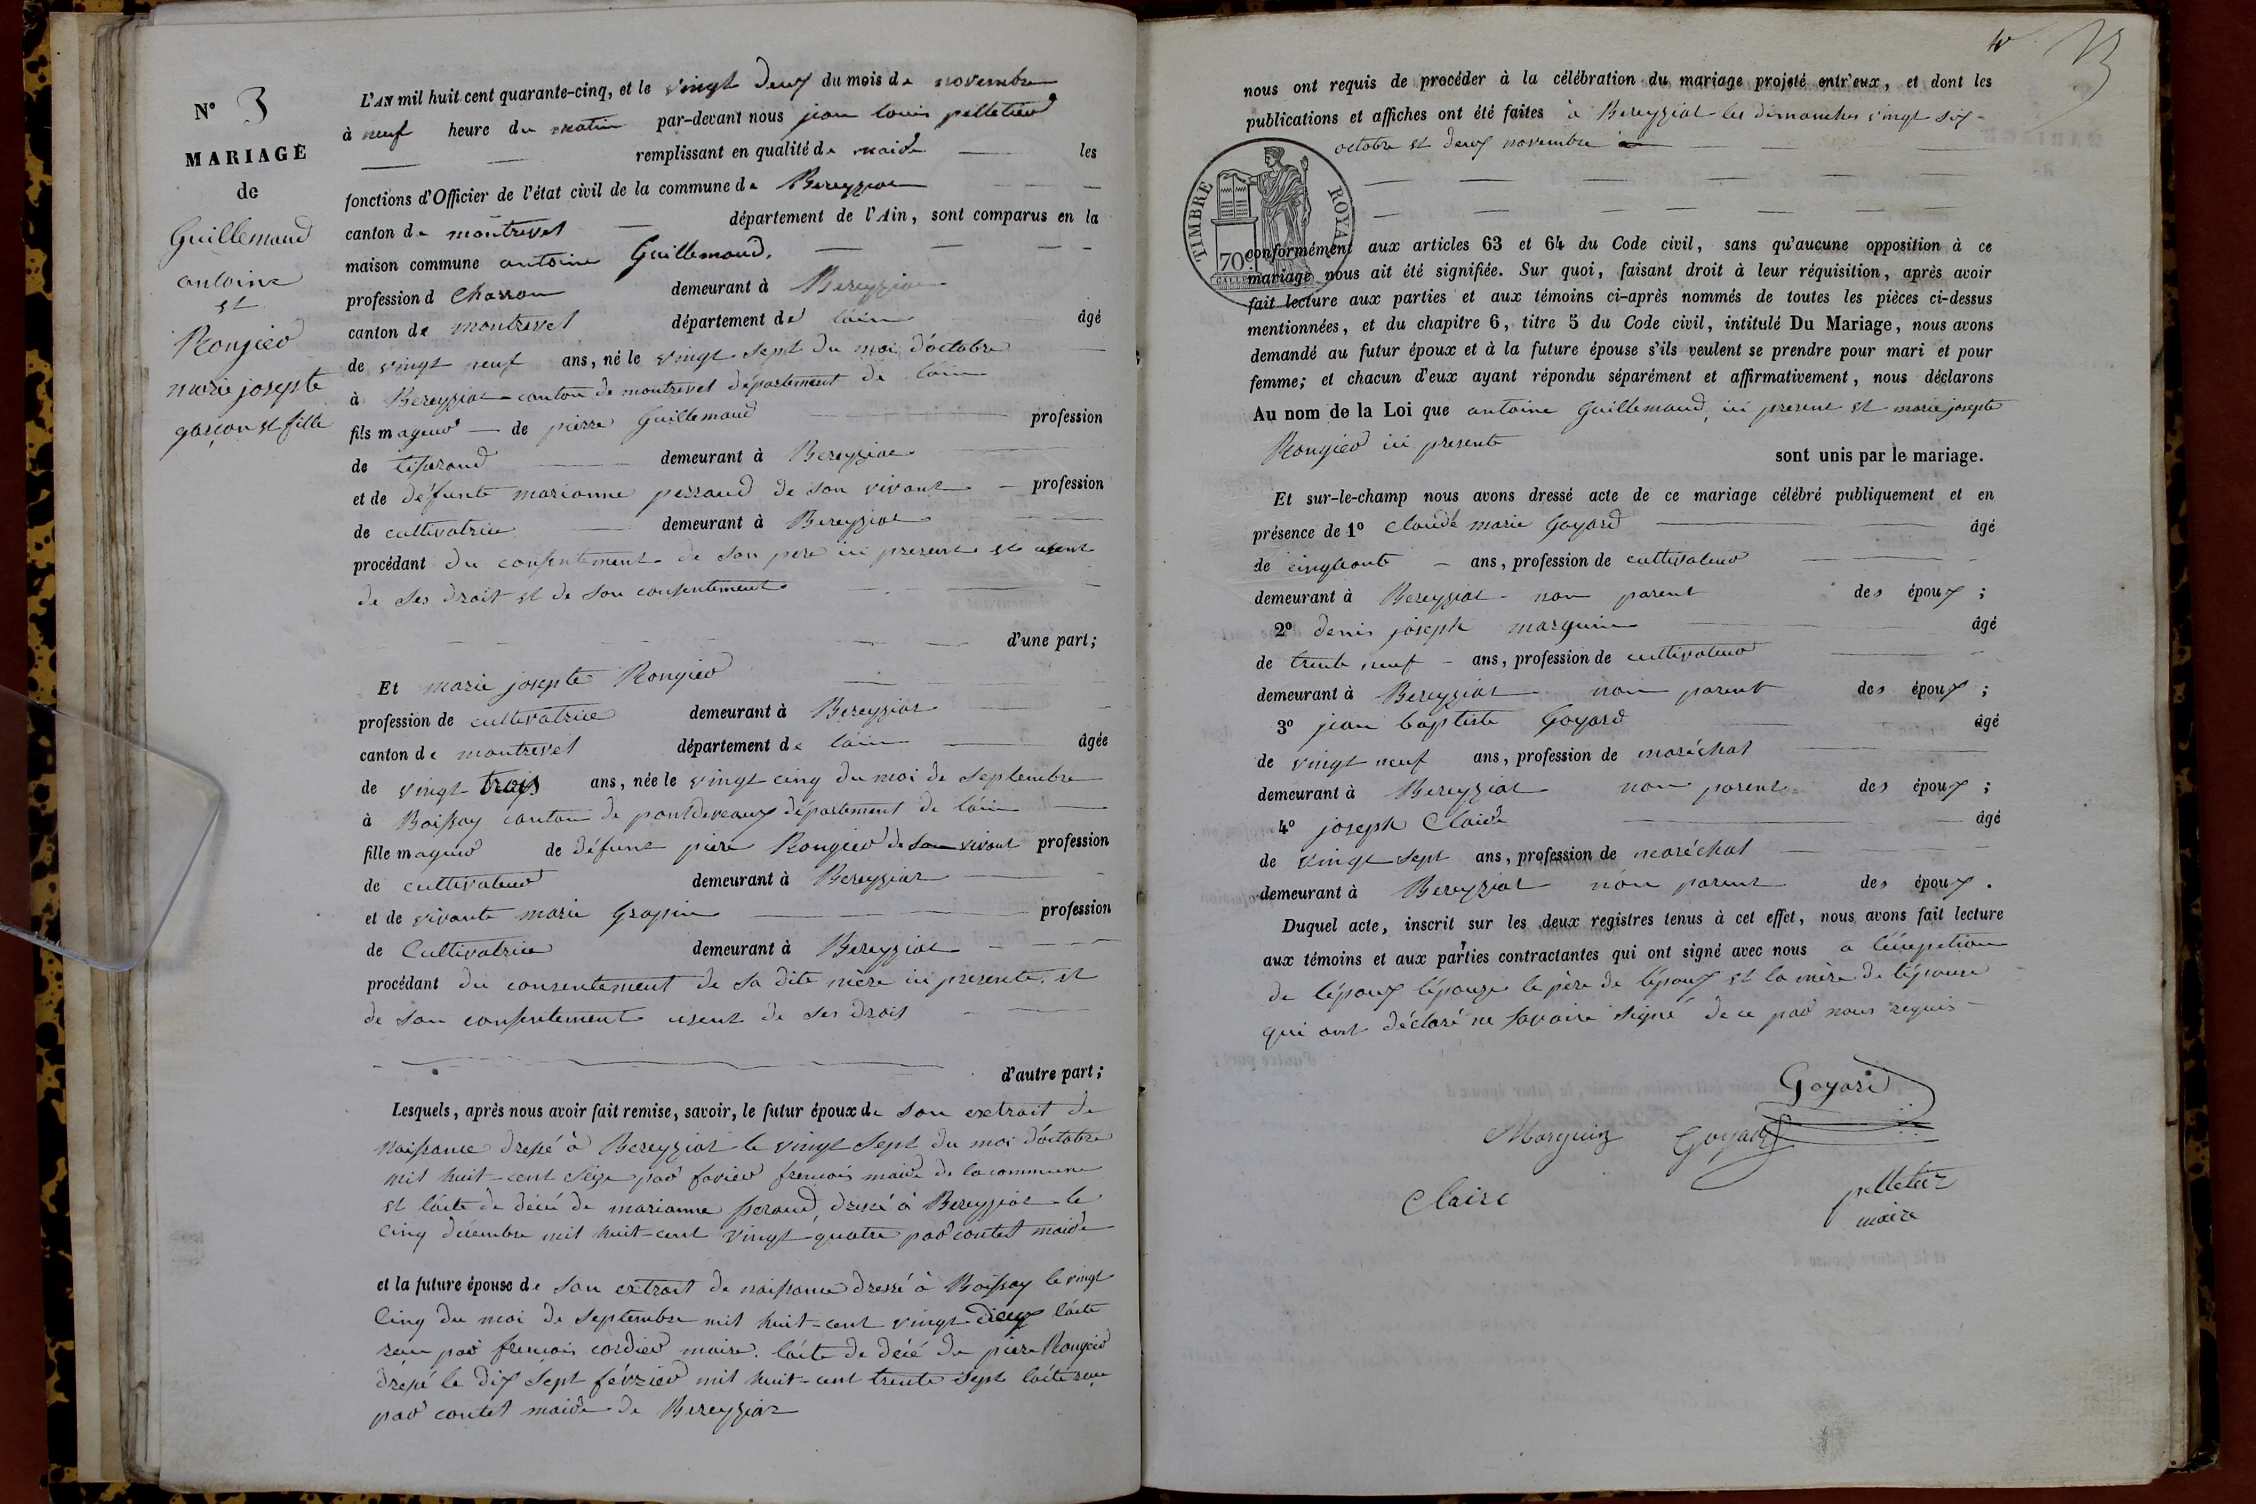 N° 3
MARIAGE
de
Guillemaud
antoine
et
Rongier
marie josepte
garcon et fille
L'AN mil huit cent quarante-cinq, et le vingt deux du mois de novembre
à neuf heure du matin par-devant nous jean louis pelletier
remplissant en qualité de maire les
fonctions d'Officier de l'état civil de la commune de Bereyziat
canton de montrevel département de l'Ain, sont comparus en la
maison commune antoine Guillemaud,
profession d Charron demeurant à Bereyziat
canton de montrevel département de láin âgé
de vingt neuf ans, né le vingt sept du moi d'octobre
à Bereyziat canton de montrevel département de láin
fils mageur de pierre Guillemaud profession
de tisserand demeurant à Bereyziat
et de défunte marianne perraud de son vivant profession
de cultivatrice demeurant à Bereyziat
procédant du consentement de son pere ici present et usent
de ses droit et de son consentement
d'une part;
Et marie josepte Rongier
profession de cultivatrice demeurant à Bereyziat
canton de montrevel département de láin âgée
de vingt trois ans, née le vingt cinq du moi de septembre
à Boissey canton de pontdevaux département de láin
fille mageur de défunt piere Rongier de son vivant profession
de cultivateur demeurant à Bereyziat
et de vivante marie Grapin profession
de Cultivatrice demeurant à Bereyziat
procédant du consentement de sa dite mère ici presente, et
de son consentement usent de ses droit
d'autre part;
Lesquels, après nous avoir fait remise, savoir, le futur époux de son extrait de
naissance dressé à Bereyziat le vingt sept du moi d'octobre
mil huit-cent seize par favier francois maire de la commune
et lácte de décé de marianne peraud, dressé à Bereyziat le
cinq décembre mil huit-cent vingt-quatre par contet maire
et la future épouse de son extrait de naissance dressé à Boissey le vingt
cinq du moi de septembre mil huit-cent vingt deux lácte
recu par francois cordier maire. lácte de décé de piere Rongier
dressé le dix sept février mil huit-cent trente sept lácte recu
par contet maire de Bereyziat
nous ont requis de procéder à la célébration du mariage projeté entr'eux, et dont les
publications et affiches ont été faites à Bereyziat les dimanches vingt six
octobre et deux novembre
TIMBRE ROYAL
70c
conformément aux articles 63 et 64 du Code civil, sans qu'aucune opposition à ce
mariage nous ait été signifiée. Sur quoi, faisant droit à leur réquisition, après avoir
fait lecture aux parties et aux témoins ci-après nommés de toutes les pièces ci-dessus
mentionnées, et du chapitre 6, titre 5 du Code civil, intitulé Du Mariage, nous avons
demandé au futur époux et à la future épouse s'ils veulent se prendre pour mari et pour
femme; et chacun d'eux ayant répondu séparément et affirmativement, nous déclarons
Au nom de la Loi que antoine Guillemaud, ici present et marie josepte
Rongier ici presente
sont unis par le mariage.
Et sur-le-champ nous avons dressé acte de ce mariage célébré publiquement et en
présence de 1° Claude marie Goyard âgé
de cinquante ans, profession de cultivateur
demeurant à Bereyziat non parent des époux;
2° denis joseph marguin âgé
de trente neuf ans, profession de cultivateur
demeurant à Bereyziat non parent des époux;
3° jean baptiste Goyard âgé
de vingt neuf ans, profession de maréchal
demeurant à Bereyziat non parent des époux;
4° joseph Claire âgé
de vingt sept ans, profession de maréchal
demeurant à Bereyziat non parent des époux.
Duquel acte, inscrit sur les deux registres tenus à cet effet, nous avons fait lecture
aux témoins et aux parties contractantes qui ont signé avec nous a léxception
de lépoux lépouze le père de lépoux et la mère de lépouse
qui ont déclaré ne savoire signé de ce par nous requis
Goyard
Marguin Goyard
Claire pelletier
maire